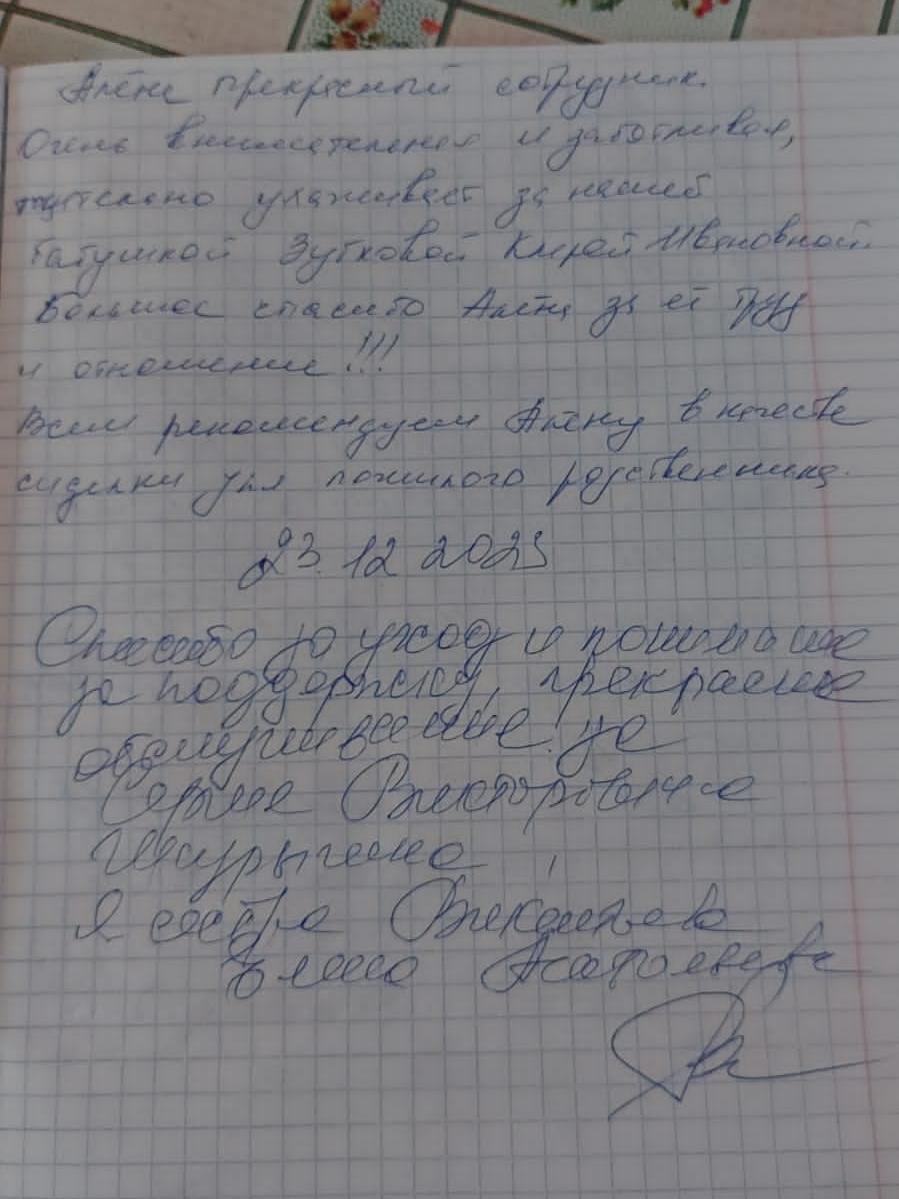 Алёна прекрасный сотрудник.
Очень внимательная и заботливая,
тщательно ухаживает за нашей
бабушкой Зубковой Кирой Ивановной.
Большое спасибо Алёне за её труд
и отношение!!!
Всем рекомендуем Алёну в качестве
сиделки для пожилого родственника.
23.12 2023
Спасибо за уход и понимание
за поддержку, прекрасное
обслуживание за
Викторовича
Шурыгина
Я сестра